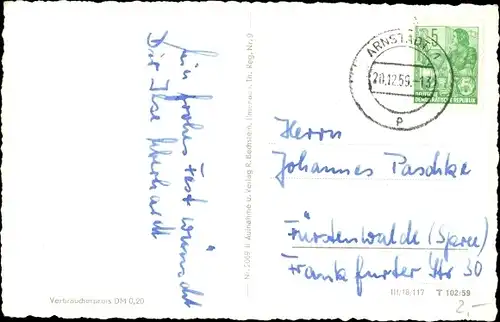 Ein frohes Fest wünscht
Dir Ilse Eberhardt
Verbraucherpreis DM 0,20
Nr. 2069 II Aufnahme u. Verlag R. Bechstein, Ilmenau i. Th. Reg. Nr. 9
ARNSTADT 1
20.12.59.-13
p
5
DEUTSCHE
DEMOKRATISCHE REPUBLIK
Herrn
Johannes Paschke
Fürstenwalde (Spree)
Frankfurter Str 30
III/18/117 T 102/59
2,-